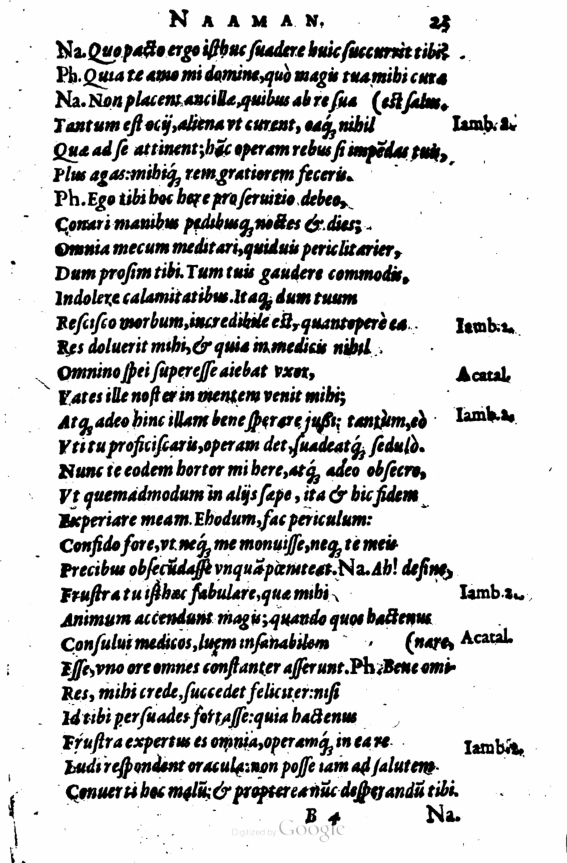 NAAMAN. 25
Na. Quo pacto ergo isthuc suadere huic succurrit tibi?
Ph. Quia te amo mi domine, quò magis tua mihi curæ
Na. Non placent ancillæ, quibus ab re sua (est salus.
Tantum est ocij, aliena vt curent, eaq́; nihil Iamb. 2.
Quæ ad se attinent; hãc operam rebus si impẽdas tuis,
Plus agas: mihiq́; rem gratiorem feceris.
Ph. Ego tibi hoc here pro seruitio debeo,
Conari manibus pedibusq; noctes & dies;
Omnia mecum meditari, quiduis periclitarier,
Dum prosim tibi. Tum tuis gaudere commodis,
Indolere calamitatibus. Itaq; dum tuum
Rescisco morbum, incredibile est, quantoperè ea Iamb. 2.
Res doluerit mihi, & quia in medicis nihil
Omnino spei superesse aiebat vxor, Acatal.
Vates ille noster in mentem venit mihi;
Atq; adeo hinc illam bene sperare jussi; tantùm, eò Iamb. 2.
Vti tu proficiscaris, operam det, suadeatq́; sedulò.
Nunc te eodem hortor mi here, atq́; adeo obsecro,
Vt quemadmodum in alijs sæpe, ita & hic fidem
Experiare meam. Ehodum, fac periculum:
Confido fore, vt neq́; me monuisse, neq; te meis
Precibus obsecũdasse vnquã pœniteat. Na. Ah! desine,
Frustra tu isthæc fabulare, quæ mihi Iamb. 2.
Animum accendunt magis; quando quos hactenus
Consului medicos, luem insanabilem (nare, Acatal.
Esse, vno ore omnes constanter asserunt. Ph. Bene omi-
Res, mihi crede, succedet feliciter: nisi
Id tibi persuades fortasse: quia hactenus
Frustra expertus es omnia, operamq́; in ea re Iamb. 2.
Ludi respondent oracula: non posse iam ad salutem
Conuerti hoc malũ; & propterea nũc desperandũ tibi.
B 4 Na.
Digitized by Google